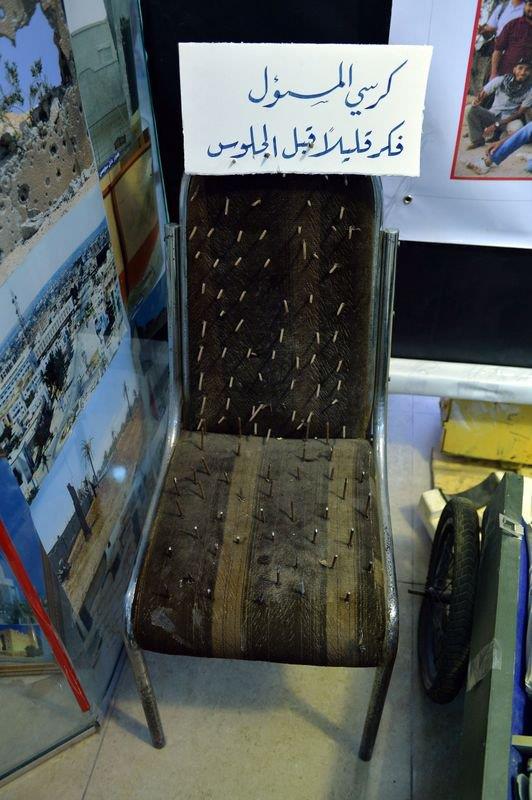 كرسي المسؤل
فكر قليلاً قبل الجلوس